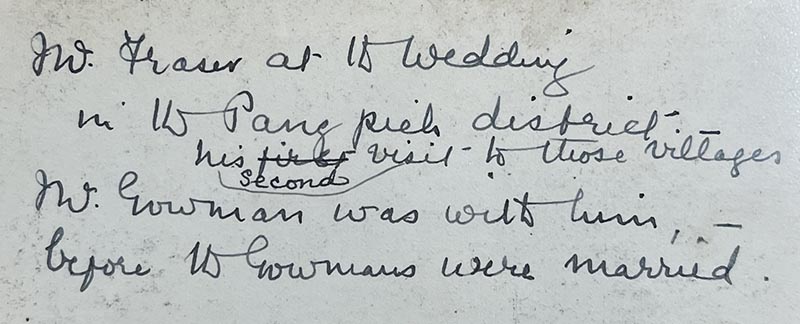 Mr. Fraser at the Wedding
in the Pang pieh district
his first visit to those villages
second
Mr. Gowman was with him, –
before the Gowmans were married.